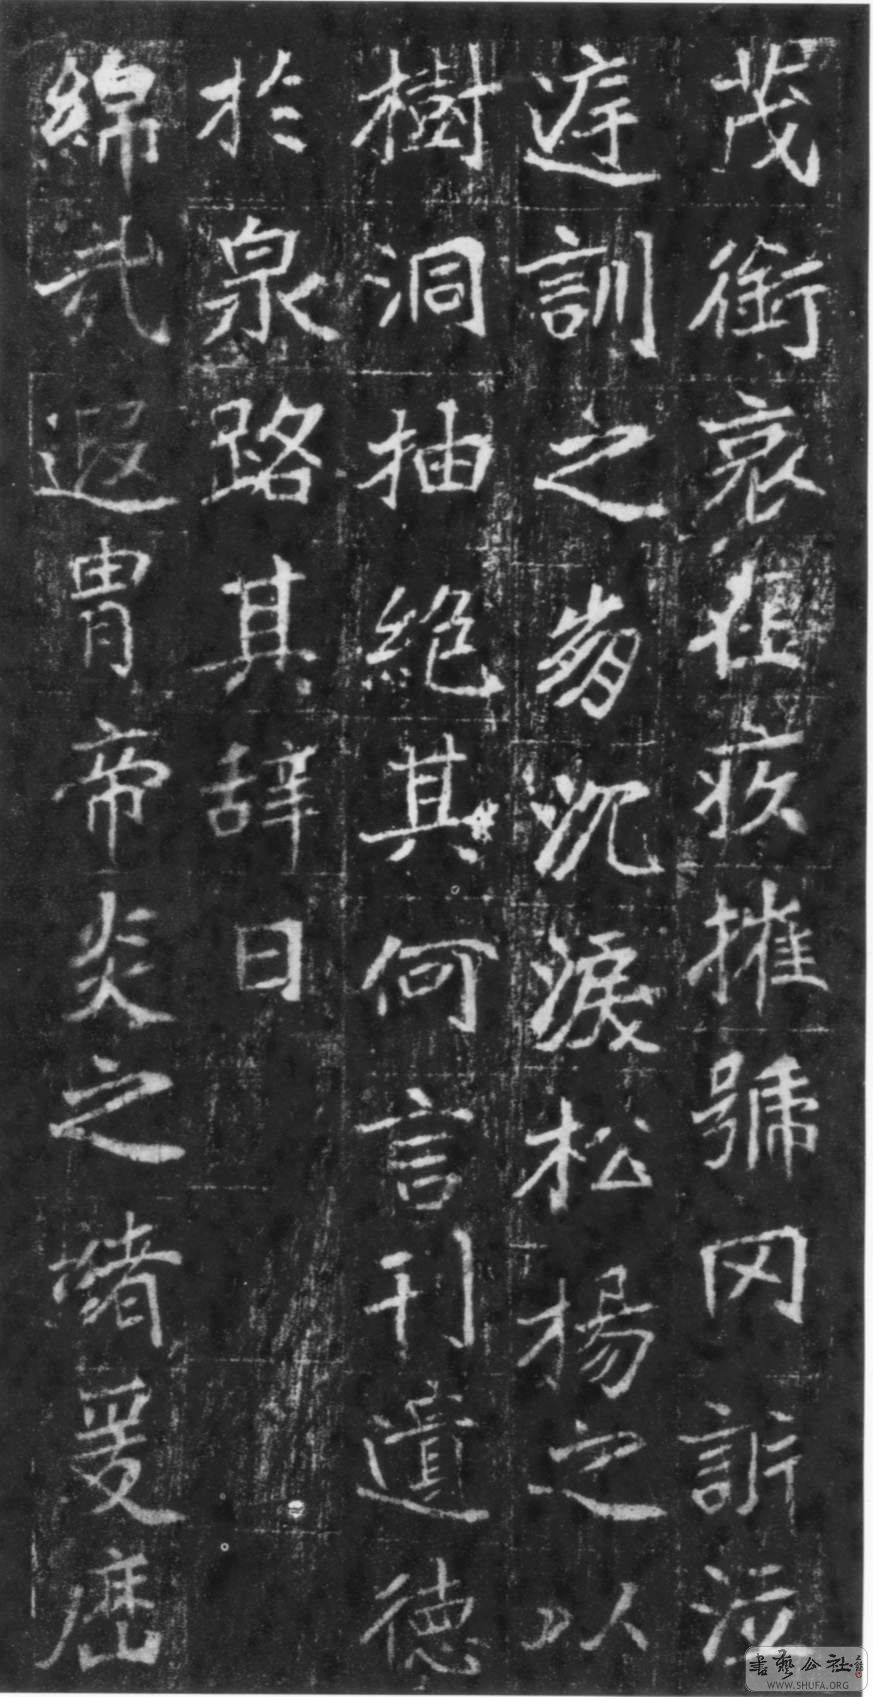 茂銜哀在疚摧號罔訴泣
遊訓之崩沉淚松楊之以
樹洞抽絕其何言刊遺德
於泉路其辭曰
綿哉遐胄帝炎之緒爰歷
書藝公社
WWW.SHUFA.ORG